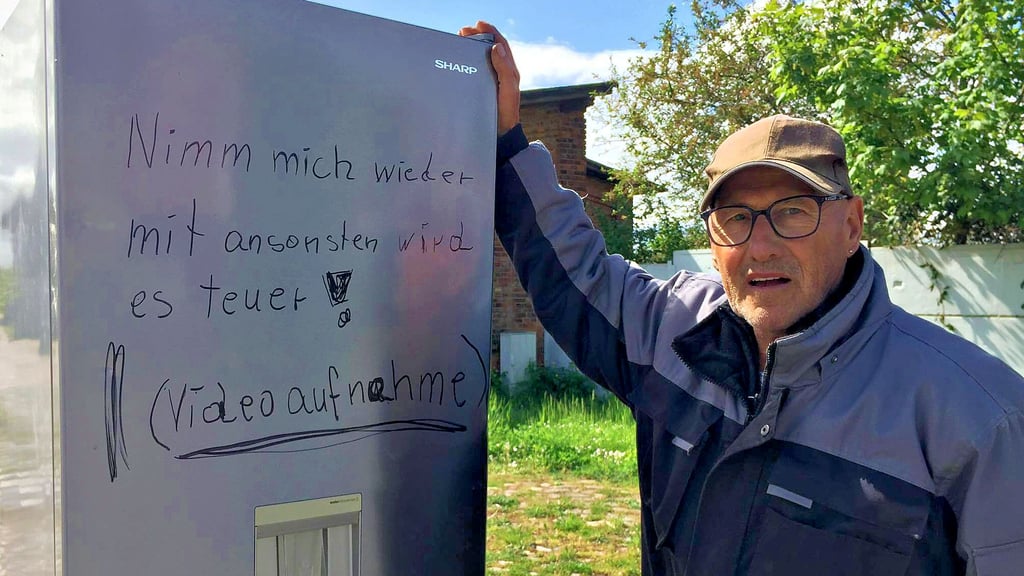 SHARP
Nimm mich wieder
mit ansonsten wird
es teuer !
(Videoaufnahme)